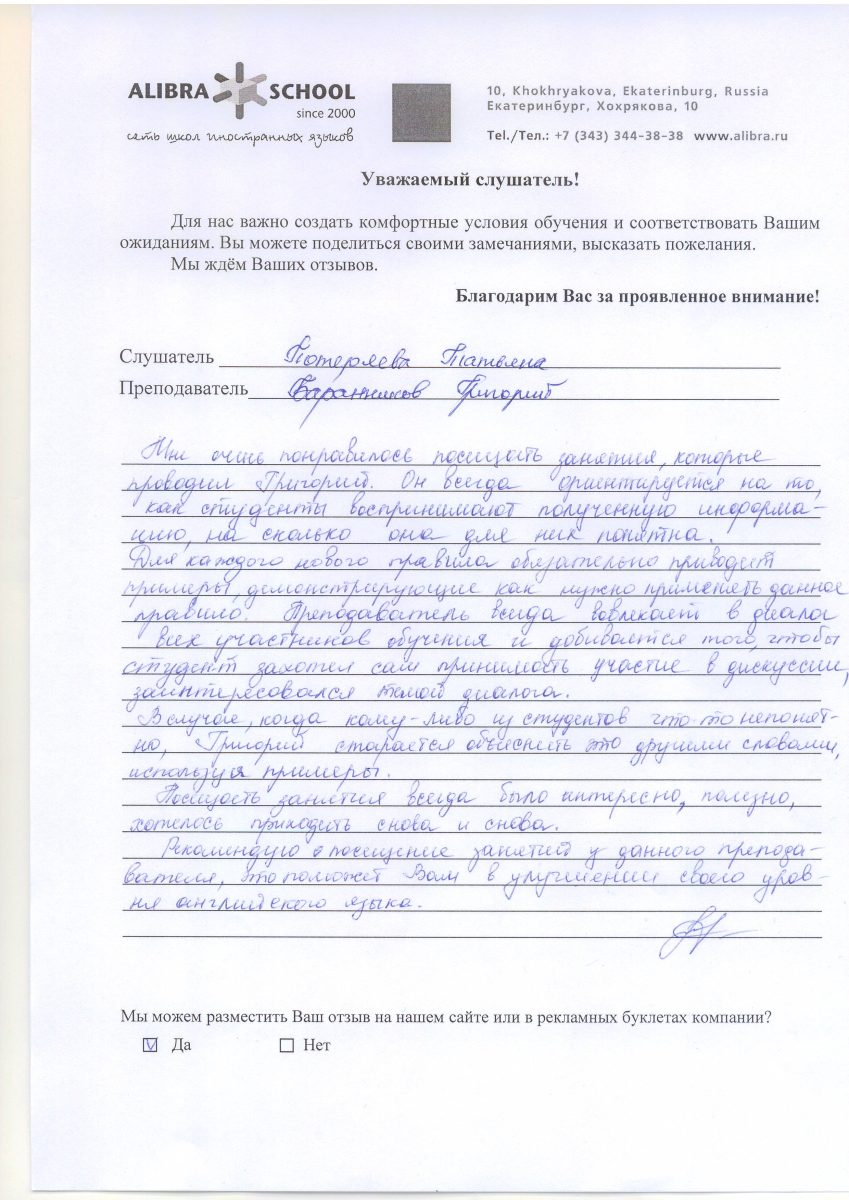 ALIBRA SCHOOL
since 2000
сеть школ иностранных языков
10, Khokhryakova, Ekaterinburg, Russia
Екатеринбург, Хохрякова, 10
Tel./Тел.: +7 (343) 344-38-38 www.alibra.ru
Уважаемый слушатель!
Для нас важно создать комфортные условия обучения и соответствовать Вашим
ожиданиям. Вы можете поделиться своими замечаниями, высказать пожелания.
Мы ждём Ваших отзывов.
Благодарим Вас за проявленное внимание!
Слушатель Потеряева Татьяна
Преподаватель Баранников Григорий
Мне очень понравилось посещать занятия, которые
проводил Григорий. Он всегда ориентируется на то,
как студенты воспринимают полученную информа-
цию, на сколько она для них понятна.
Для каждого нового правила обязательно приводит
примеры, демонстрирующие как нужно применять данное
правило. Преподаватель всегда вовлекает в диалог
всех участников обучения и добивается того, чтобы
студент захотел сам принимать участие в дискуссии,
заинтересовался темой диалога.
В случае, когда кому-либо из студентов что-то непонят-
но, Григорий старается объяснить это другими словами,
используя примеры.
Посещать занятия всегда было интересно, полезно,
хотелось приходить снова и снова.
Рекомендую посещение занятий у данного препода-
вателя, это поможет Вам в улучшении своего уров-
ня английского языка.
Мы можем разместить Ваш отзыв на нашем сайте или в рекламных буклетах компании?
Да Нет